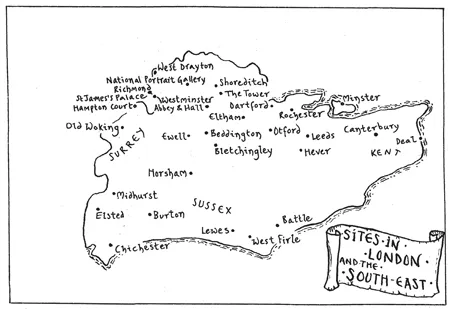 West Drayton
National Portrait Gallery
Richmond
Shoreditch
St James's Palace
Westminster
Abbey & Hall
The Tower
Hampton Court
Dartford
Minster
Eltham
Rochester
Old Woking
SURREY
Ewell
Beddington
Otford
Leeds
Canterbury
Deal
Bletchingley
Hever
KENT
Horsham
Midhurst
Elsted
Burton
SUSSEX
Battle
Lewes
West Firle
Chichester
SITES IN
LONDON
AND THE
SOUTH-EAST